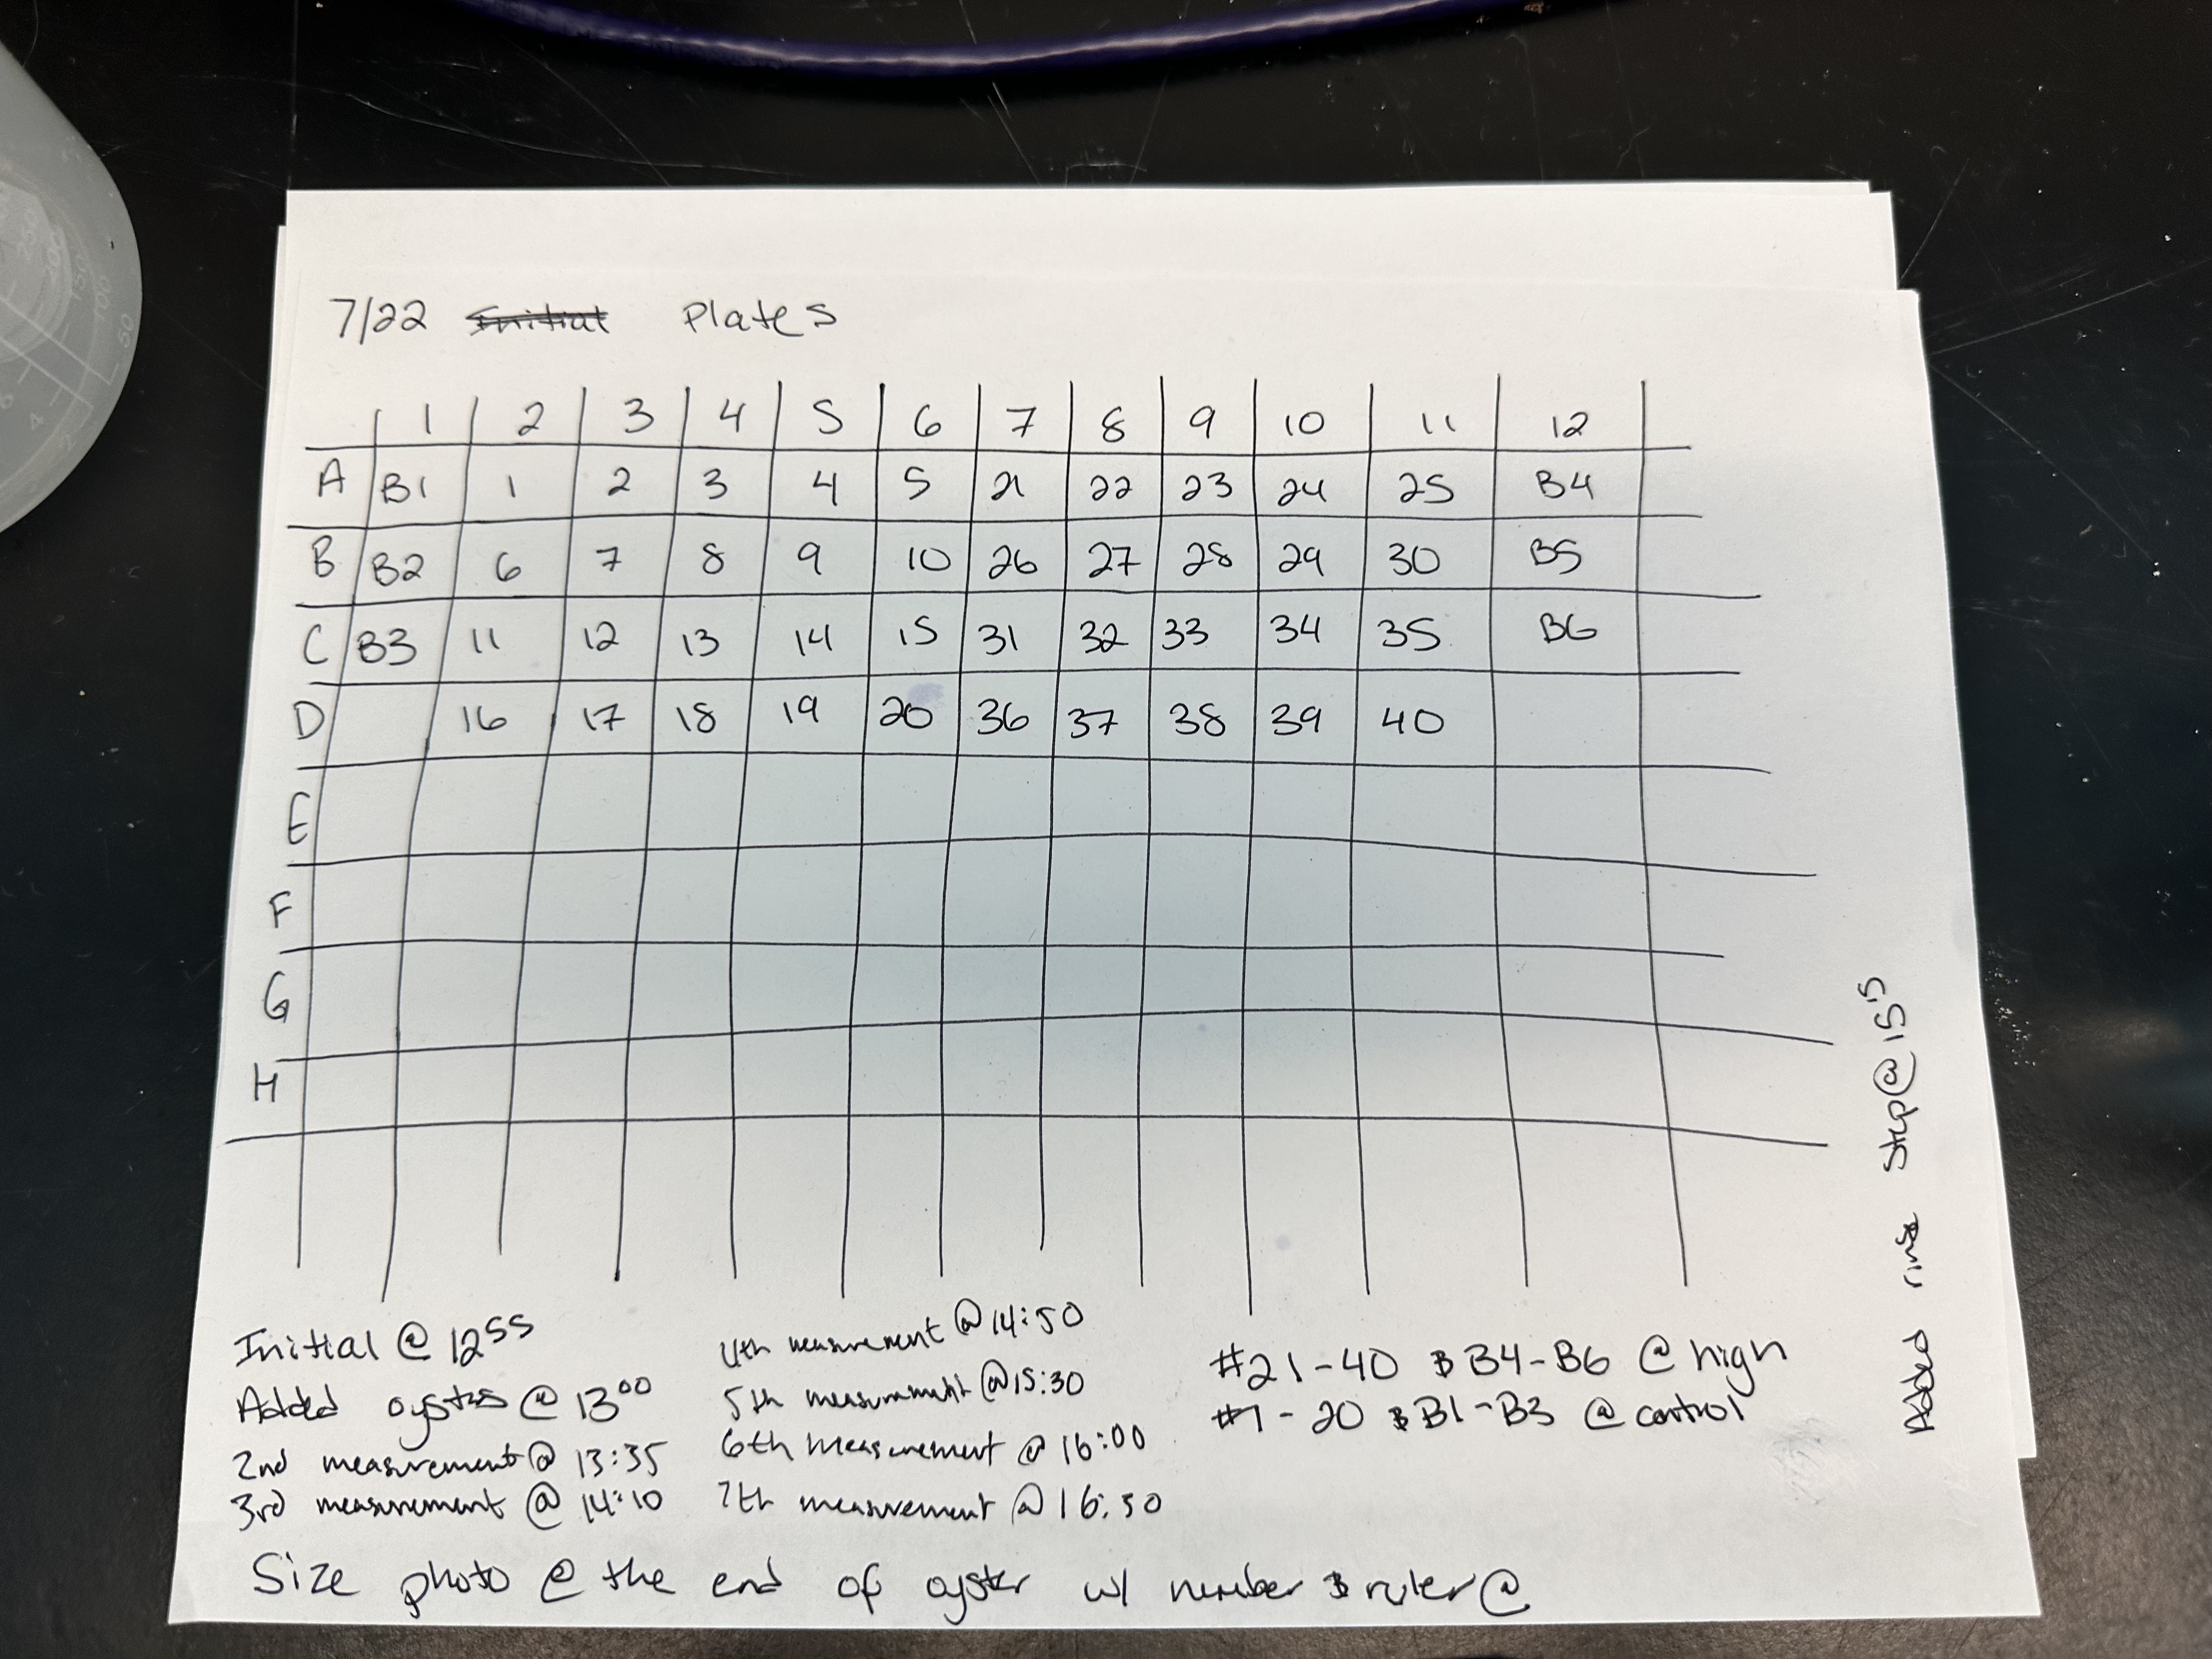 7/22 Plates
1 2 3 4 5 6 7 8 9 10 11 12
A B1 1 2 3 4 5 21 22 23 24 25 B4
B B2 6 7 8 9 10 26 27 28 29 30 B5
C B3 11 12 13 14 15 31 32 33 34 35 B6
D 16 17 18 19 20 36 37 38 39 40
E
F
G
H
Initial @ 12⁵⁵
Added oysters @ 13⁰⁰
2nd measurement @ 13:35
3rd measurement @ 14:10
4th measurement @ 14:50
5th measurement @ 15:30
6th measurement @ 16:00
7th measurement @ 16:50
#21-40 & B4-B6 @ high
#1-20 & B1-B3 @ control
Size photo @ the end of oyster w/ number & ruler @
Added rinse step @ 15¹⁵
250
200
150
100
50